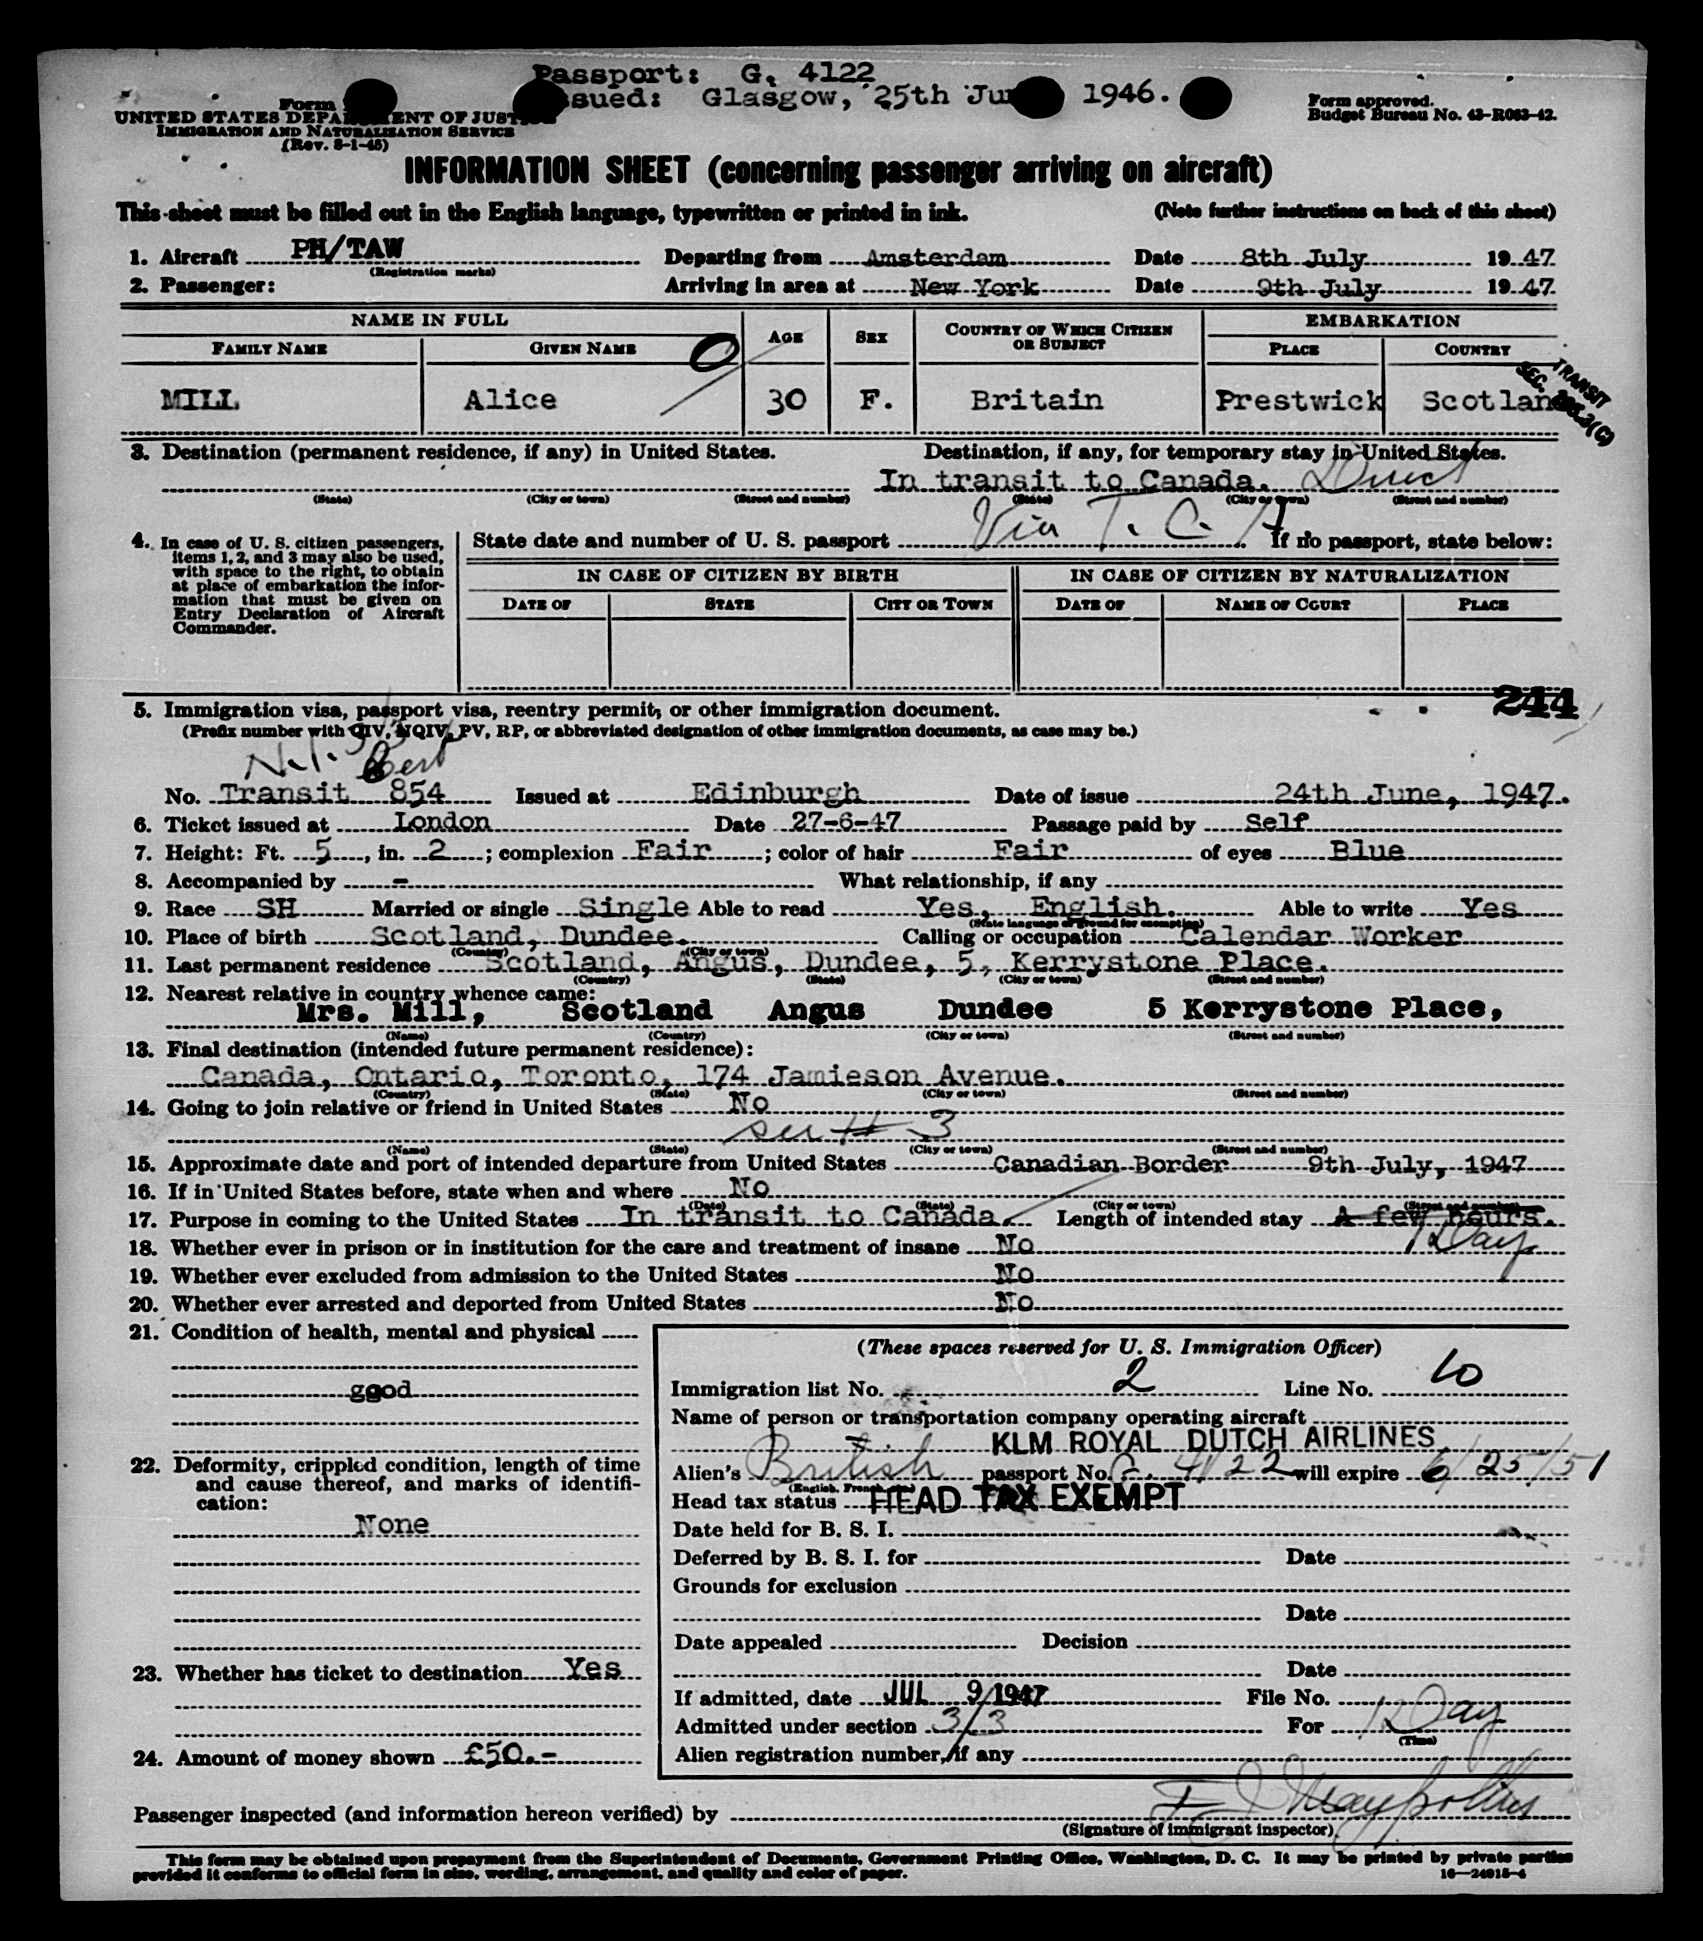 Passport: G. 4122
Issued: Glasgow, 25th Ju 1946.
Form
UNITED STATES DEPARTMENT OF JUSTICE
IMMIGRATION AND NATURALIZATION SERVICE
(Rev. 8-1-45)
Form approved.
Budget Bureau No. 43-R063-42.
INFORMATION SHEET (concerning passenger arriving on aircraft)
This sheet must be filled out in the English language, typewritten or printed in ink. (Note further instructions on back of this sheet)
1. Aircraft PH/TAW Departing from Amsterdam Date 8th July 19 47
(Registration marks)
2. Passenger: Arriving in area at New York Date 9th July 19 47
NAME IN FULL AGE SEX COUNTRY OF WHICH CITIZEN OR SUBJECT EMBARKATION
FAMILY NAME GIVEN NAME PLACE COUNTRY
MILL Alice 30 F. Britain Prestwick Scotland
TRANSIT
SEC. 3(C)
3. Destination (permanent residence, if any) in United States. Destination, if any, for temporary stay in United States.
In transit to Canada. Direct
(State) (City or town) (Street and number) (State) (City or town) (Street and number)
4. In case of U. S. citizen passengers, items 1, 2, and 3 may also be used, with space to the right, to obtain at place of embarkation the information that must be given on Entry Declaration of Aircraft Commander.
State date and number of U. S. passport Via T. C. A If no passport, state below:
IN CASE OF CITIZEN BY BIRTH IN CASE OF CITIZEN BY NATURALIZATION
DATE OF STATE CITY OR TOWN DATE OF NAME OF COURT PLACE
244
5. Immigration visa, passport visa, reentry permit, or other immigration document.
(Prefix number with QIV, NQIV, PV, RP, or abbreviated designation of other immigration documents, as case may be.)
Cert
No. Transit 854 Issued at Edinburgh Date of issue 24th June, 1947.
6. Ticket issued at London Date 27-6-47 Passage paid by Self
7. Height: Ft. 5, in. 2; complexion Fair; color of hair Fair of eyes Blue
8. Accompanied by - What relationship, if any
9. Race SH Married or single Single Able to read Yes, English. Able to write Yes
(State language or ground for exemption)
10. Place of birth Scotland, Dundee. Calling or occupation Calendar Worker
(Country) (City or town)
11. Last permanent residence Scotland, Angus, Dundee, 5, Kerrystone Place.
(Country) (State) (City or town) (Street and number)
12. Nearest relative in country whence came:
Mrs. Mill, Scotland Angus Dundee 5 Kerrystone Place,
(Name) (Country) (City or town) (Street and number)
13. Final destination (intended future permanent residence):
Canada, Ontario, Toronto, 174 Jamieson Avenue.
(Country) (State) (City or town) (Street and number)
14. Going to join relative or friend in United States No
see # 3
(Name) (State) (City or town) (Street and number)
15. Approximate date and port of intended departure from United States Canadian Border 9th July, 1947
16. If in United States before, state when and where No
(Date) (State) (City or town) (Street and number)
17. Purpose in coming to the United States In transit to Canada. Length of intended stay A few hours.
1 Day
18. Whether ever in prison or in institution for the care and treatment of insane No
19. Whether ever excluded from admission to the United States No
20. Whether ever arrested and deported from United States No
21. Condition of health, mental and physical
good
22. Deformity, crippled condition, length of time and cause thereof, and marks of identification:
None
23. Whether has ticket to destination Yes
24. Amount of money shown £50.-
(These spaces reserved for U. S. Immigration Officer)
Immigration list No. 2 Line No. 10
Name of person or transportation company operating aircraft
KLM ROYAL DUTCH AIRLINES
Alien's British passport No. G. 4122 will expire 6/25/51
(English, French, etc.)
Head tax status HEAD TAX EXEMPT
Date held for B. S. I.
Deferred by B. S. I. for Date
Grounds for exclusion
Date
Date appealed Decision
Date
If admitted, date JUL 9 1947 File No.
Admitted under section 3/3 For 1 Day
(Time)
Alien registration number, if any
Passenger inspected (and information hereon verified) by
(Signature of immigrant inspector)
This form may be obtained upon prepayment from the Superintendent of Documents, Government Printing Office, Washington, D. C. It may be printed by private parties
provided it conforms to official form in size, wording, arrangement, and quality and color of paper. 16—24915-4